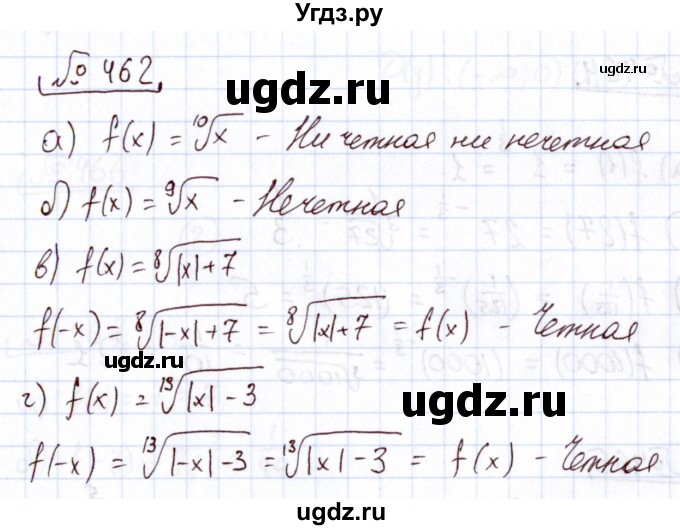 Угдз.ру
№ 462
ugdz.ru
а) f(x) = ¹⁰√x - Ни четная ни нечетная
б) f(x) = ⁹√x - Нечетная
ugdz.ru
в) f(x) = ⁸√|x|+7
f(-x) = ⁸√|-x|+7 = ⁸√|x|+7 = f(x) - Четная
ugdz.ru
г) f(x) = ¹³√|x|-3
ugdz.ru
f(-x) = ¹³√|-x|-3 = ¹³√|x|-3 = f(x) - Четная
ugdz.ru